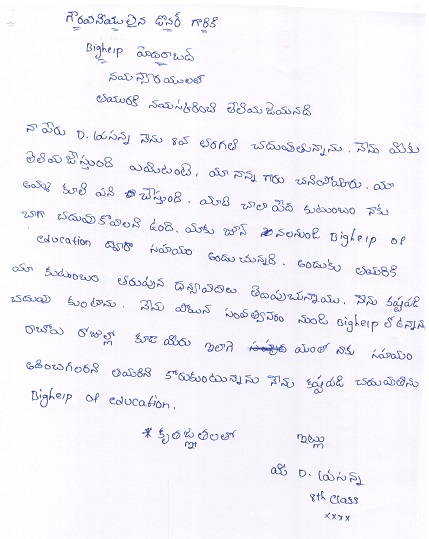 గౌరవనీయులైన డోనర్ గారికి
Bighelp హైదరాబాద్
నమస్కారములతో
తమరికి నమస్కరించి తెలియజేయునది
నా పేరు D. ప్రసన్న నేను 8వ తరగతి చదువుతున్నాను. నేను మీకు
తెలియజేస్తుంది ఏమిటంటే, మా నాన్న గారు చనిపోయారు. మా
అమ్మ కూలి పని చేస్తుంది. మాది చాలా పేద కుటుంబం నాకు
బాగా చదువుకోవాలని ఉంది. మాకు జూన్ నెలనుండి Bighelp of
education ద్వారా సహాయం అందుచున్నది. అందుకు తమరికి
మా కుటుంబం తరుపున ధన్యవాదాలు తెలుపుచున్నాము. నేను కష్టపడి
చదువు కుంటాను. నేను పోయిన సంవత్సరం నుండి Bighelp లో ఉన్నాను
రాబోయే రోజుల్లో కూడా మీరు ఇలాగే మాకు సహాయం
అందించగలరని తమరిని కోరుకుంటున్నాను నేను కష్టపడి చదువుతాను
Bighelp of education.
* కృతజ్ఞతలతో ఇట్లు
మీ D. ప్రసన్న
8th class
xxxx